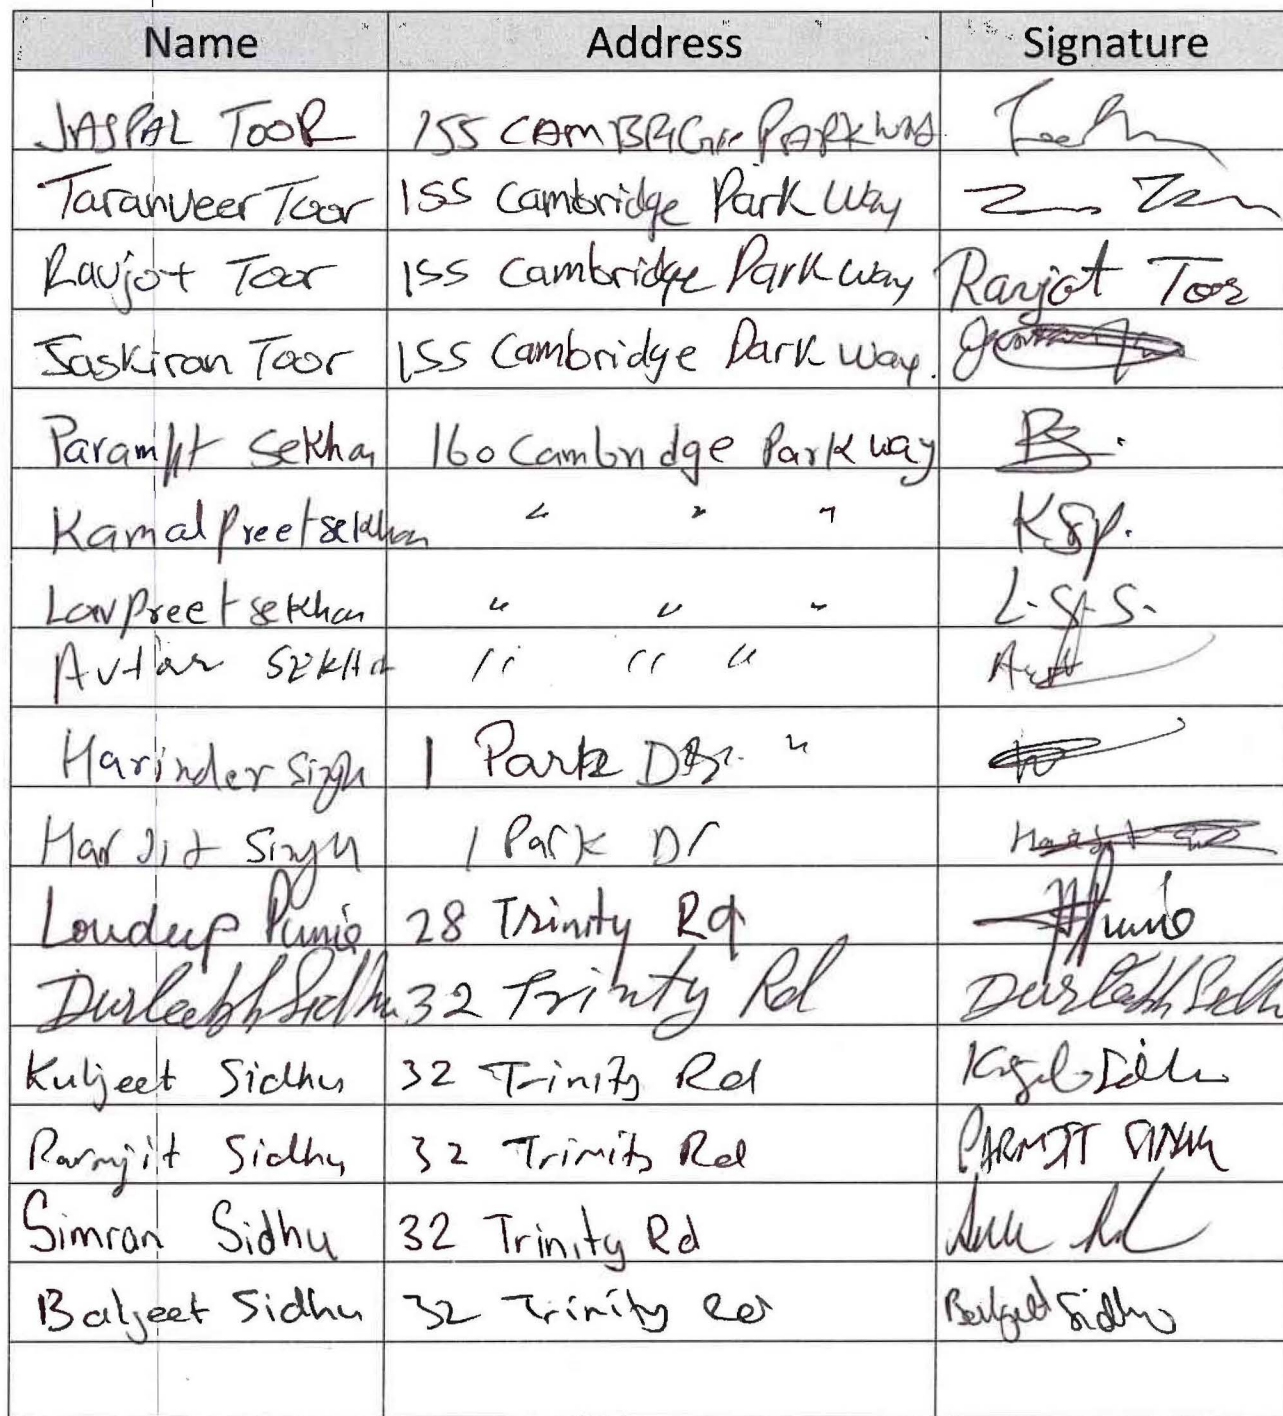 Name Address Signature
JASPAL TOOR 155 CAMBRIGE PARKWAY
Taranveer Toor 155 Cambridge Park Way
Ravjot Toor 155 Cambridge Park way Ravjot Toor
Jaskiran Toor 155 Cambridge Park way.
Paramjit Sekhon 160 Cambridge Park way PS.
Kamalpreet sekhon " " " KSP.
Lovpreet sekhon " " " L.S.S.
Avtar SEKHON " " "
Harinder Singh 1 Park Dr. "
Harjit Singh 1 Park Dr
Punia 28 Trinity Rd Punia
Durlabh Sidhu 32 Trinity Rd Durlabh Sidhu
Kuljeet Sidhu 32 Trinity Rd Sidhu
Parmjit Sidhu 32 Trinity Rd PARMJIT SIDHU
Simran Sidhu 32 Trinity Rd
Baljeet Sidhu 32 Trinity Rd Baljeet Sidhu